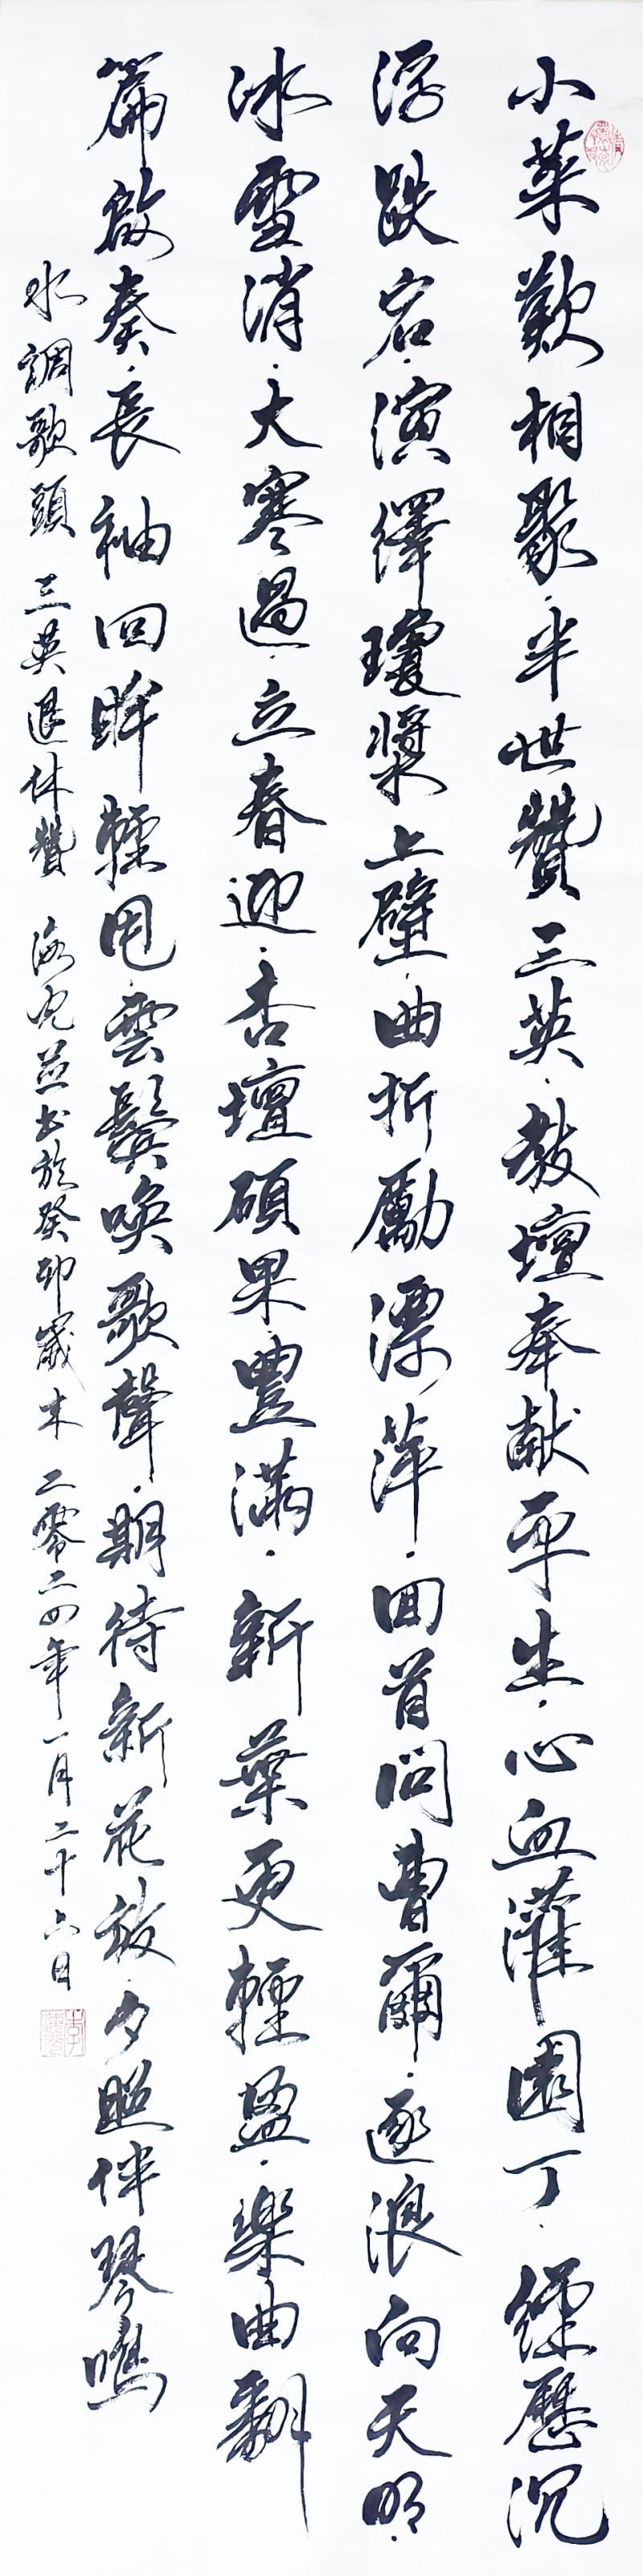 小菜歡相聚·半世贊三英·教壇奉献平生·心血灌園丁·經歷沉
浮跌宕·演繹瓊漿上壁·曲折勵漂萍·回首問曹爾·逐浪向天明·
冰雪消·大寒過·立春迎·杏壇碩果豐滿·新葉更輕盈·樂曲翻
篇啟奏·長袖回眸輕甩·雲鬢喚歌聲·期待新花放·夕照伴琴鳴
水調歌頭 三英退休贊 海光並书於癸卯歲末 二零二四年一月二十六日